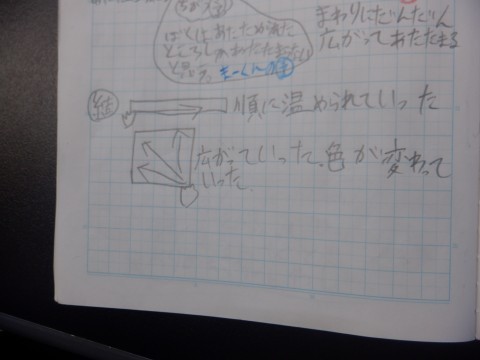 ぼくはあたためられた
ところしかあたたまらない
と思う。
まわりにだんだん
広がってあたたまる
結
順に温められていった
広がっていった。色が変わって
いった